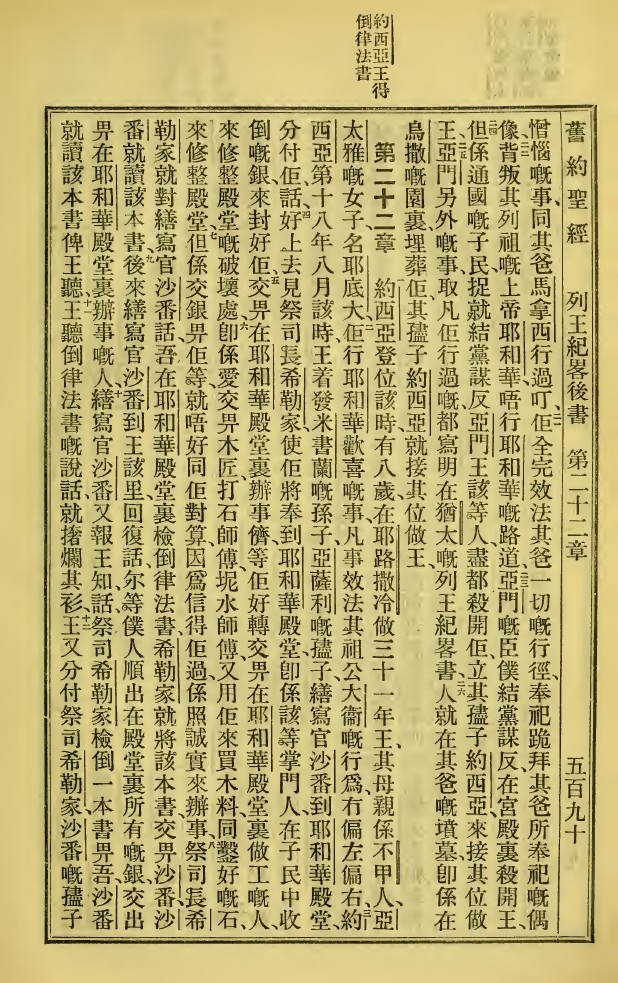 約西亞王得
倒律法書
舊約聖經 列王紀畧後書 第二十二章 五百九十
憎惱嘅事、同其爸馬拿西行過叮、二一佢全完效法其爸一切嘅行徑、奉祀跪拜其爸所奉祀嘅偶
像、二二背叛其列祖嘅上帝耶和華、唔行耶和華嘅路道、二三亞門嘅臣僕結黨謀反、在宮殿裏殺開王、
二四但係通國嘅子民捉就結黨謀反亞門王該等人、盡都殺開、佢立其孻子約西亞、來接其位做
王、二五亞門另外嘅事、取凡佢行過嘅、都寫明在猶太嘅列王紀畧書、二六人就在其爸嘅墳墓、卽係在
烏撒嘅園裏埋葬佢、其孻子約西亞就接其位做王、
第二十二章 一約西亞登位該時、有八歲、在耶路撒冷做三十一年王、其母親係不甲人、亞
太雅嘅女子、名耶底大、二佢行耶和華歡喜嘅事、凡事效法其祖公大衞嘅行爲、冇偏左偏右、三約
西亞第十八年八月該時、王着發米書蘭嘅孫子、亞薩利嘅孻子、繕寫官沙番、到耶和華殿堂、
分付佢話、四好上去見祭司長希勒家、使佢將奉到耶和華殿堂、卽係該等掌門人、在子民中收
倒嘅銀、來封好佢、五交畀在耶和華殿堂裏辦事儕等、佢好轉交畀在耶和華殿堂裏做工嘅人、
來修整殿堂嘅破壞處、六卽係愛交畀木匠、打石師傅、坭水師傅、又用佢來買木料、同鑿好嘅石、
來修整殿堂、七但係交銀畀佢等、就唔好同佢對算、因爲信得佢過、係照誠實來辦事、八祭司長希
勒家就對繕寫官沙番話、吾在耶和華殿堂裏檢倒律法書、希勒家就將該本書交畀沙番、沙
番就讀該本書、九後來繕寫官沙番到王該里、回復話、尔等僕人順出在殿堂裏所有嘅銀、交出
畀在耶和華殿堂裏辦事嘅人、十繕寫官沙番又報王知、話、祭司希勒家檢倒一本書畀吾、沙番
就讀該本書俾王聽、十一王聽倒律法書嘅說話、就撦爛其衫、十二王又分付祭司希勒家、沙番嘅孻子